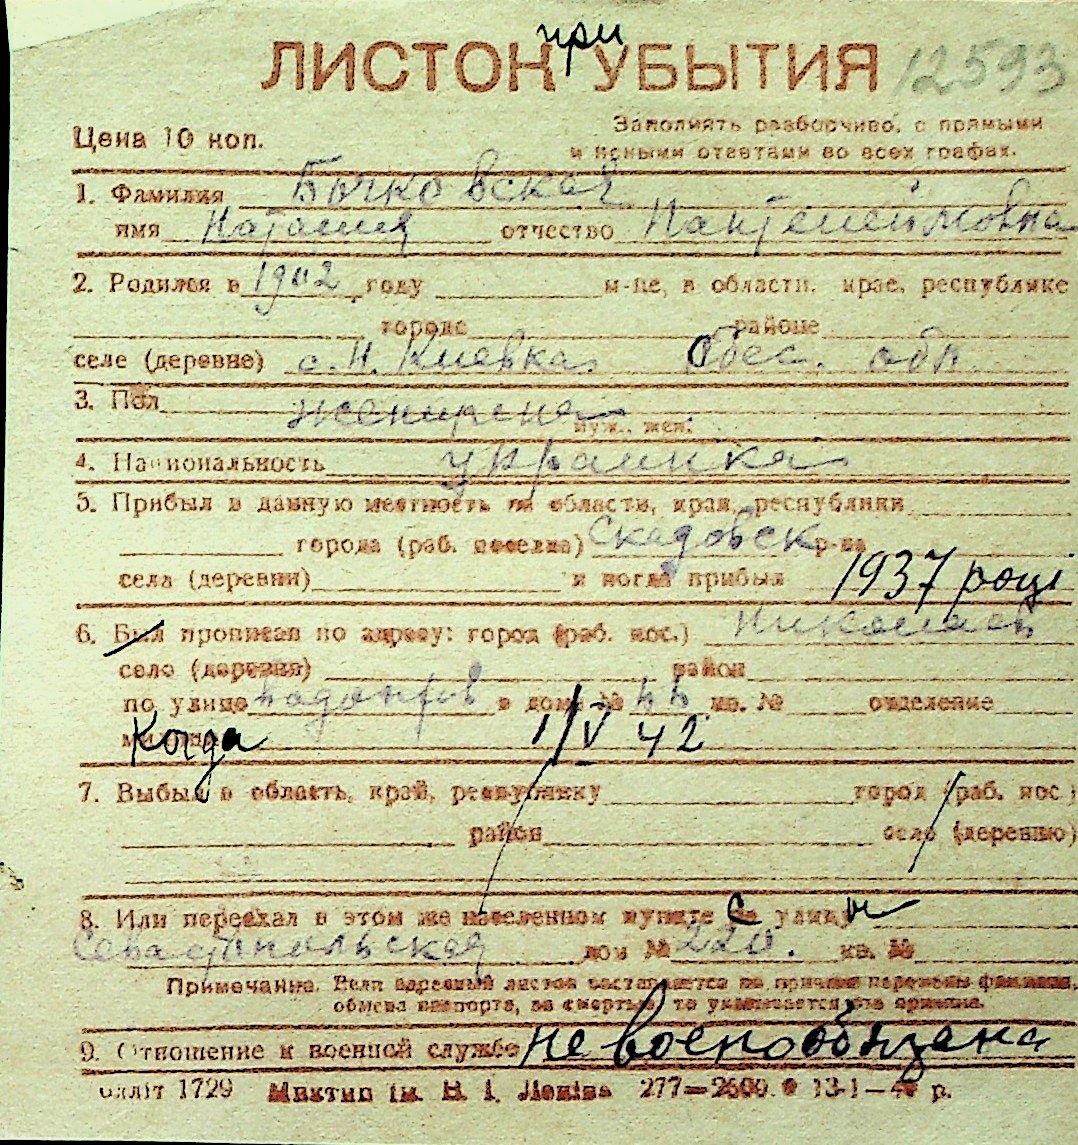 при
ЛИСТОК УБЫТИЯ 12593
Цена 10 коп.
Заполнять разборчиво, с прямыми
и ясными ответами во всех графах.
1. Фамилия Бычковская
имя Наталия отчество Пантелеймовна
2. Родился в 1902 году м-це, в области, крае, республике
городе районе
селе (деревне) с. Н. Киевка Одес. обл.
3. Пол женщена
муж., жен.
4. Национальность украинка
5. Прибыл в данную местность из области, края, республики
города (раб. поселка) Скадовск р-на
села (деревни) и когда прибыл 1937 році
6. Был прописан по адресу: город (раб. пос.) Николаев
село (деревня) район
по улице в доме № кв. № отделение
Когда 1/V 42
7. Выбыл в область, край, республику город (раб. пос.)
район село (деревню)
8. Или переехал в этом же населенном пункте с улицы
Севастопольская дом № 220. кв. №
Примечание. Если адресный листок составляется по причине перемены фамилии,
обмена паспорта, за смертью, то указывается эта причина.
9. Отношение к военной службе не военнообязана
1729 Миктип ім. В. І. Леніна 277—2600. 13-1-4 р.